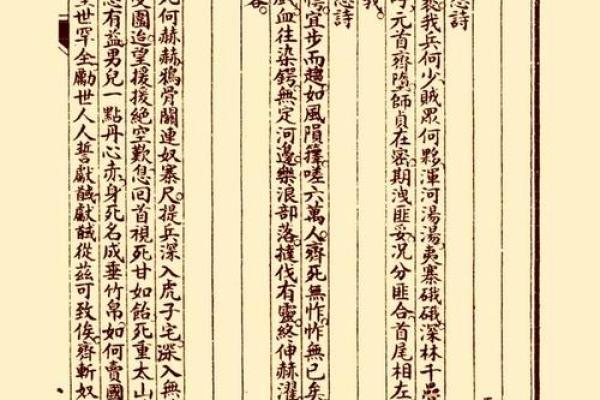 詩
我兵何少賊眾何夥渾河湯湯夷寨硪硪深林千
元首齊墮師貞在密期洩匪妥況分匪合首尾相左
詩
宜步而趨如風隕籜嗟六萬人齊死無怍怍無已矣
血往染鍔無定河邊樂浪部落撻伐有靈終伸赫濯
何赫赫鴉骨關連奴寨尺提兵深入虎子宅深入無
圍迨望援援絕空歎息回首視死甘如飴死重太山
有益男兒一點丹心赤身死名成垂竹帛如何賣國
世罕全勵世人人誓獻馘獻馘從茲可致俟齊斬奴